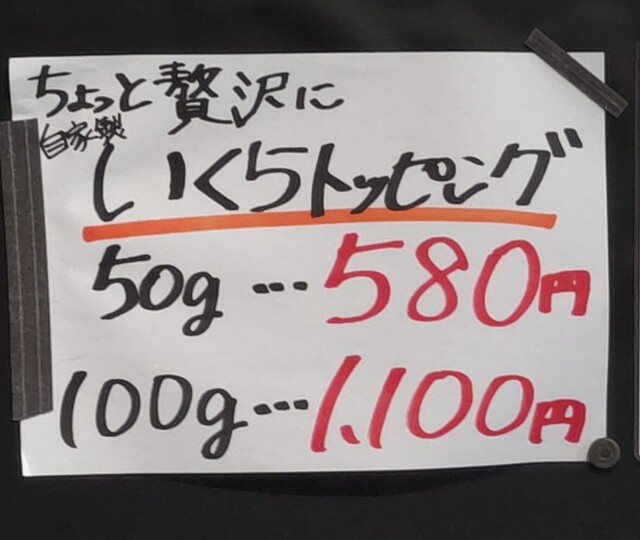 ちょっと贅沢に
自家製
いくらトッピング
50g…580円
100g…1,100円